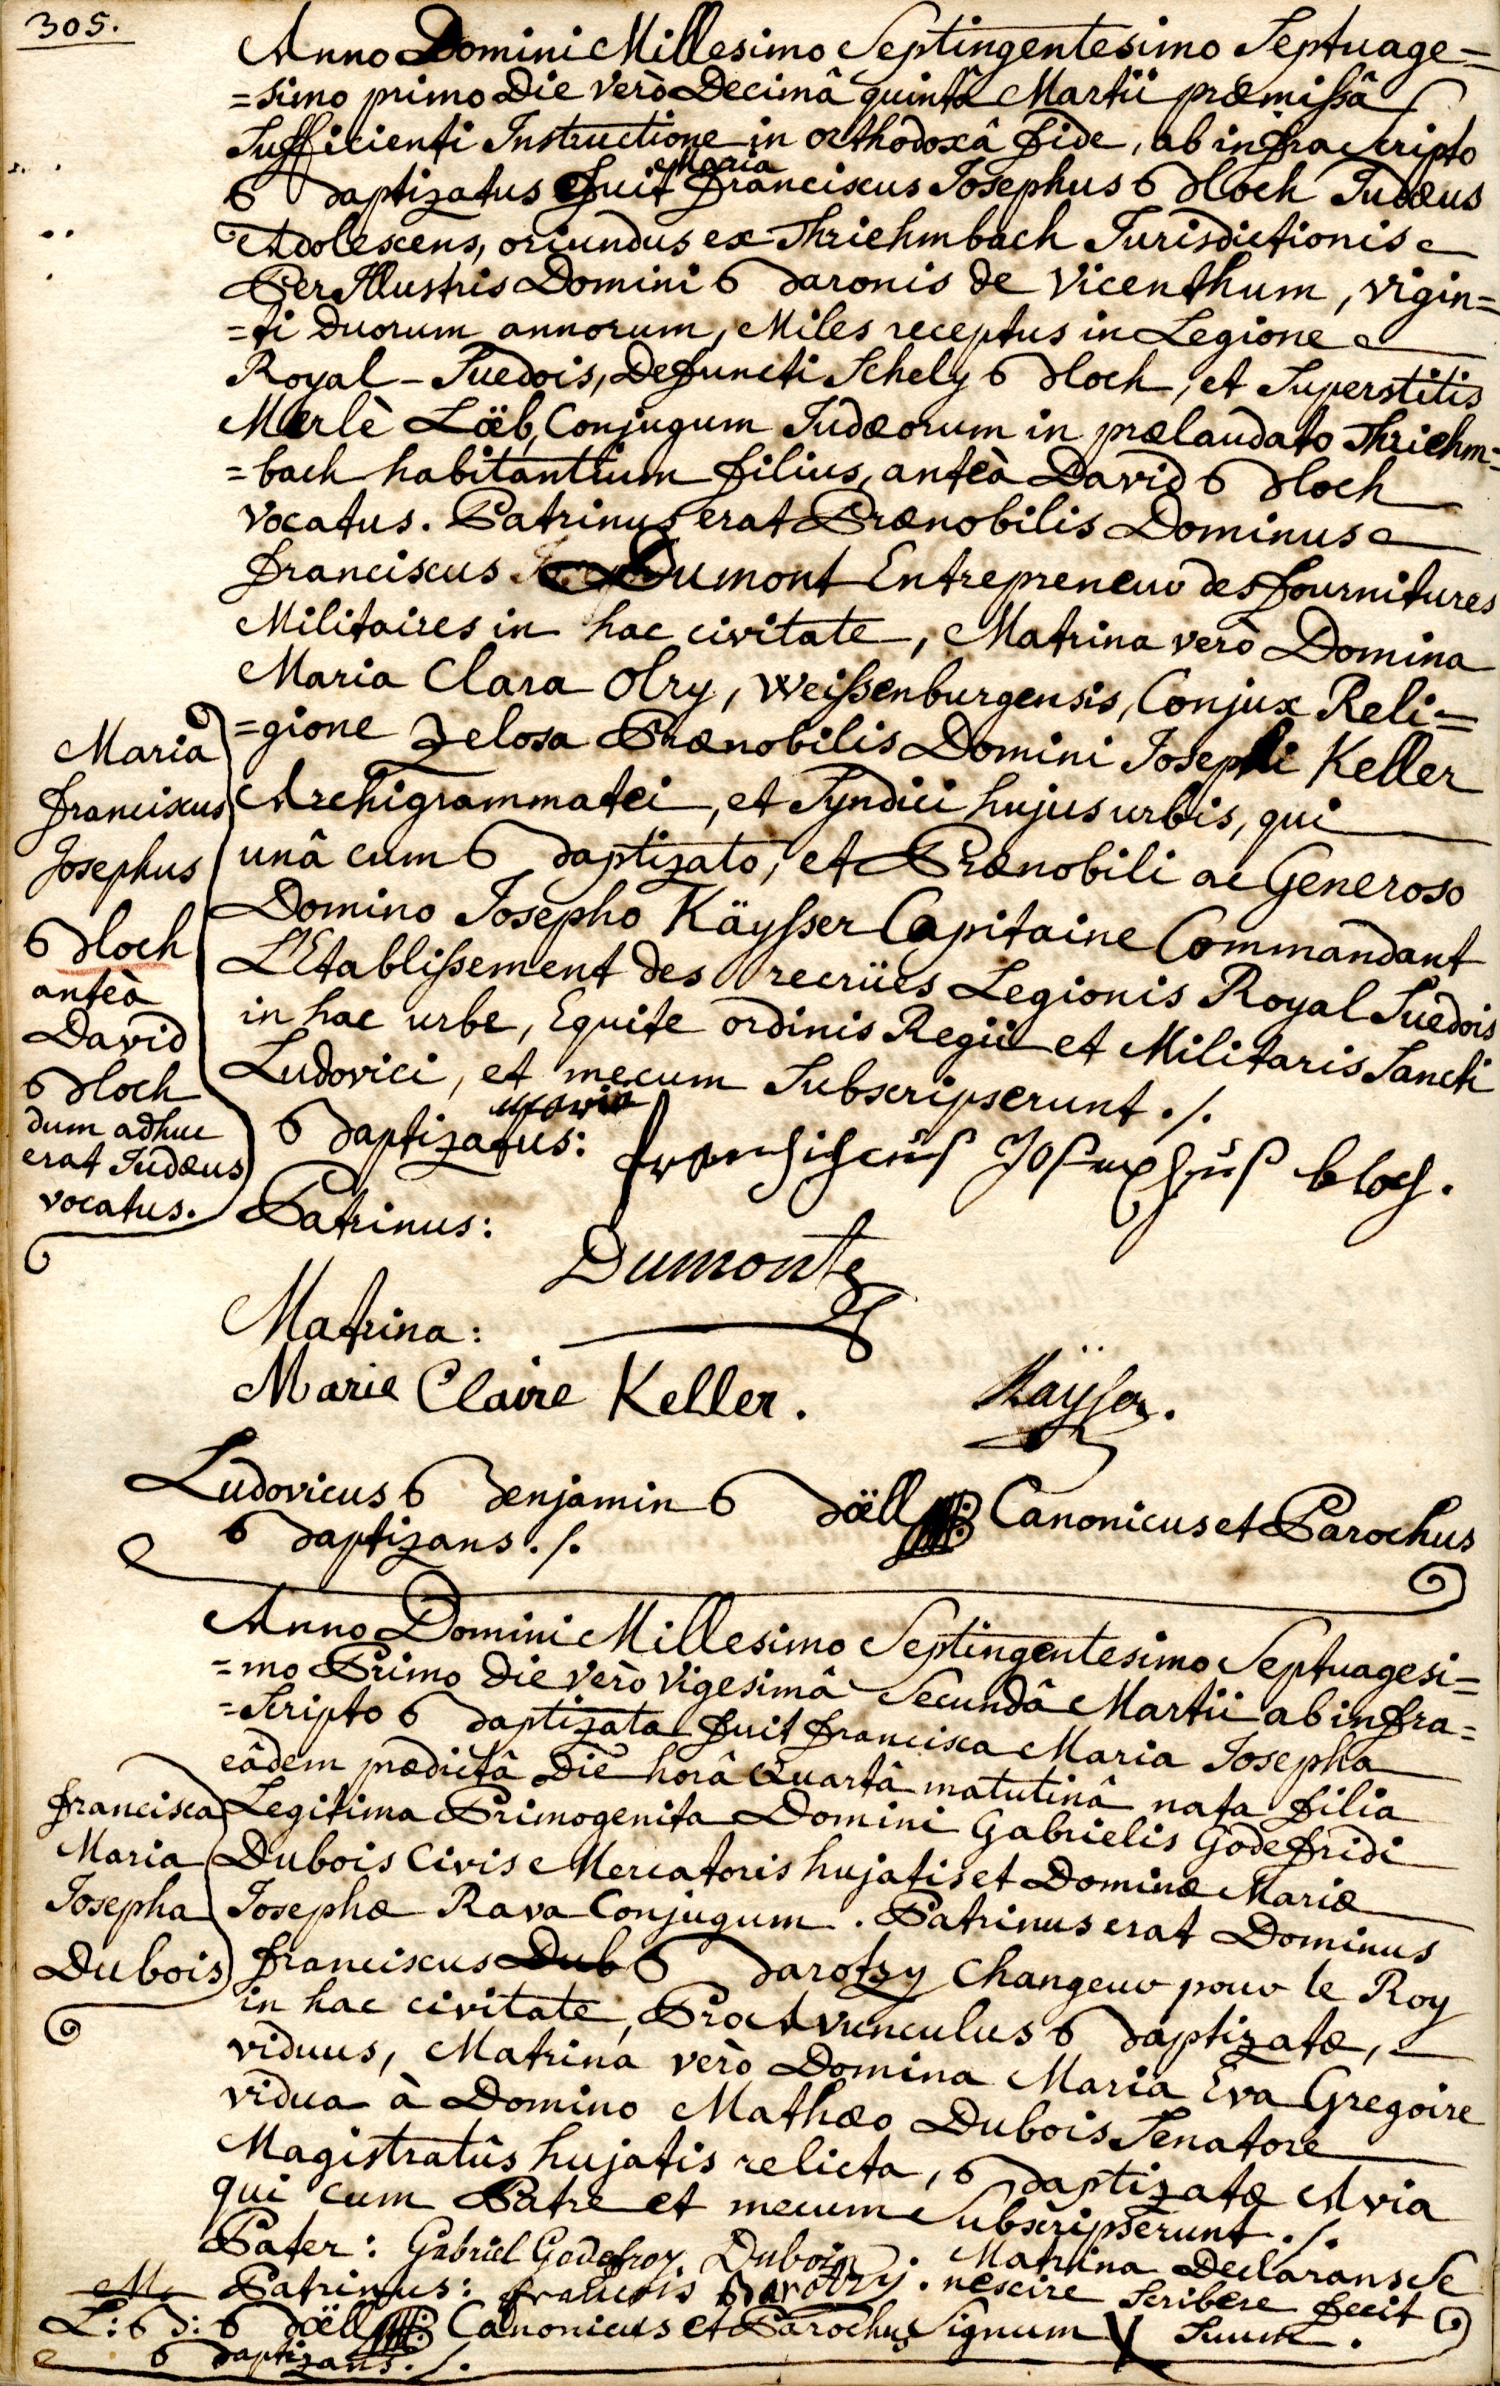 305.
Anno Domini Millesimo Septingentesimo Septuage=
=simo primo Die verò Decimâ quintâ Martii præmissâ
Sufficienti Instructione in orthodoxâ fide, ab infra Scripto
Baptizatus fuit Maria Franciscus Josephus Bloch Judæus
Adolescens, oriundus ex Thriehmbach Jurisdictionis
PerIllustris Domini Baronis de Vicenthum, vigin=
=ti duorum annorum, Miles receptus in Legione
Royal-Suedois, Defuncti Schely Bloch, et Superstitis
Merlè Löeb, Conjugum Judæorum in prælaudato Thriehm=
=bach habitantium filius, anteà David Bloch
vocatus. Patrinus erat Prænobilis Dominus
Franciscus Dumont Entrepreneur des fournitures
Militaires in hac civitate, Matrina verò Domina
Maria Clara Olry, Weissenburgensis, Conjux Reli=
=gione zelosa Prænobilis Domini Josephi Keller
Archigrammatei, et Syndici hujus urbis, qui
unâ cum Baptizato, et Prænobili ac Generoso
Domino Josepho Käysser Capitaine Commandant
L'Etablissement des recrües Legionis Royal Suedois
in hac urbe, Equite ordinis Regii et Militaris Sancti
Ludovici, et mecum Subscripserunt ./.
Maria
Franciscus
Josephus
Bloch
anteà
David
Bloch
dum adhuc
erat Judæus
vocatus.
Baptizatus: Maria franchischus Josephus bloch.
Patrinus:
Dumont
Matrina:
Marie Claire Keller. Käysser.
Ludovicus Benjamin Böell Canonicus et Parochus
Baptizans ./.
Anno Domini Millesimo Septingentesimo Septuagesi=
=mo Primo Die verò vigesimâ Secundâ Martii ab infra=
=Scripto Baptizata fuit Francisca Maria Josepha
eâdem prædictâ Die horâ Quartâ matutinâ nata filia
Legitima Primogenita Domini Gabrielis Godefridi
Dubois Civis Mercatoris hujatis et Dominæ Mariæ
Josephæ Rava Conjugum. Patrinus erat Dominus
Franciscus Dub Barotzy Changeur pour le Roy
in hac civitate, ProAvunculus Baptizatæ,
viduus, Matrina verò Domina Maria Eva Gregoire
vidua à Domino Mathæo Dubois Senatore
Magistratûs hujatis relicta, Baptizatæ Avia
qui cum Patre et mecum Subscripserunt ./.
Francisca
Maria
Josepha
Dubois
Pater: Gabriel Godefroy Dubois. Matrina Declarans Se
Patrinus: françois Barotzy. nescire Scribere fecit
L: B: Böell Canonicus et Parochus Signum Suum.
Baptizans ./.